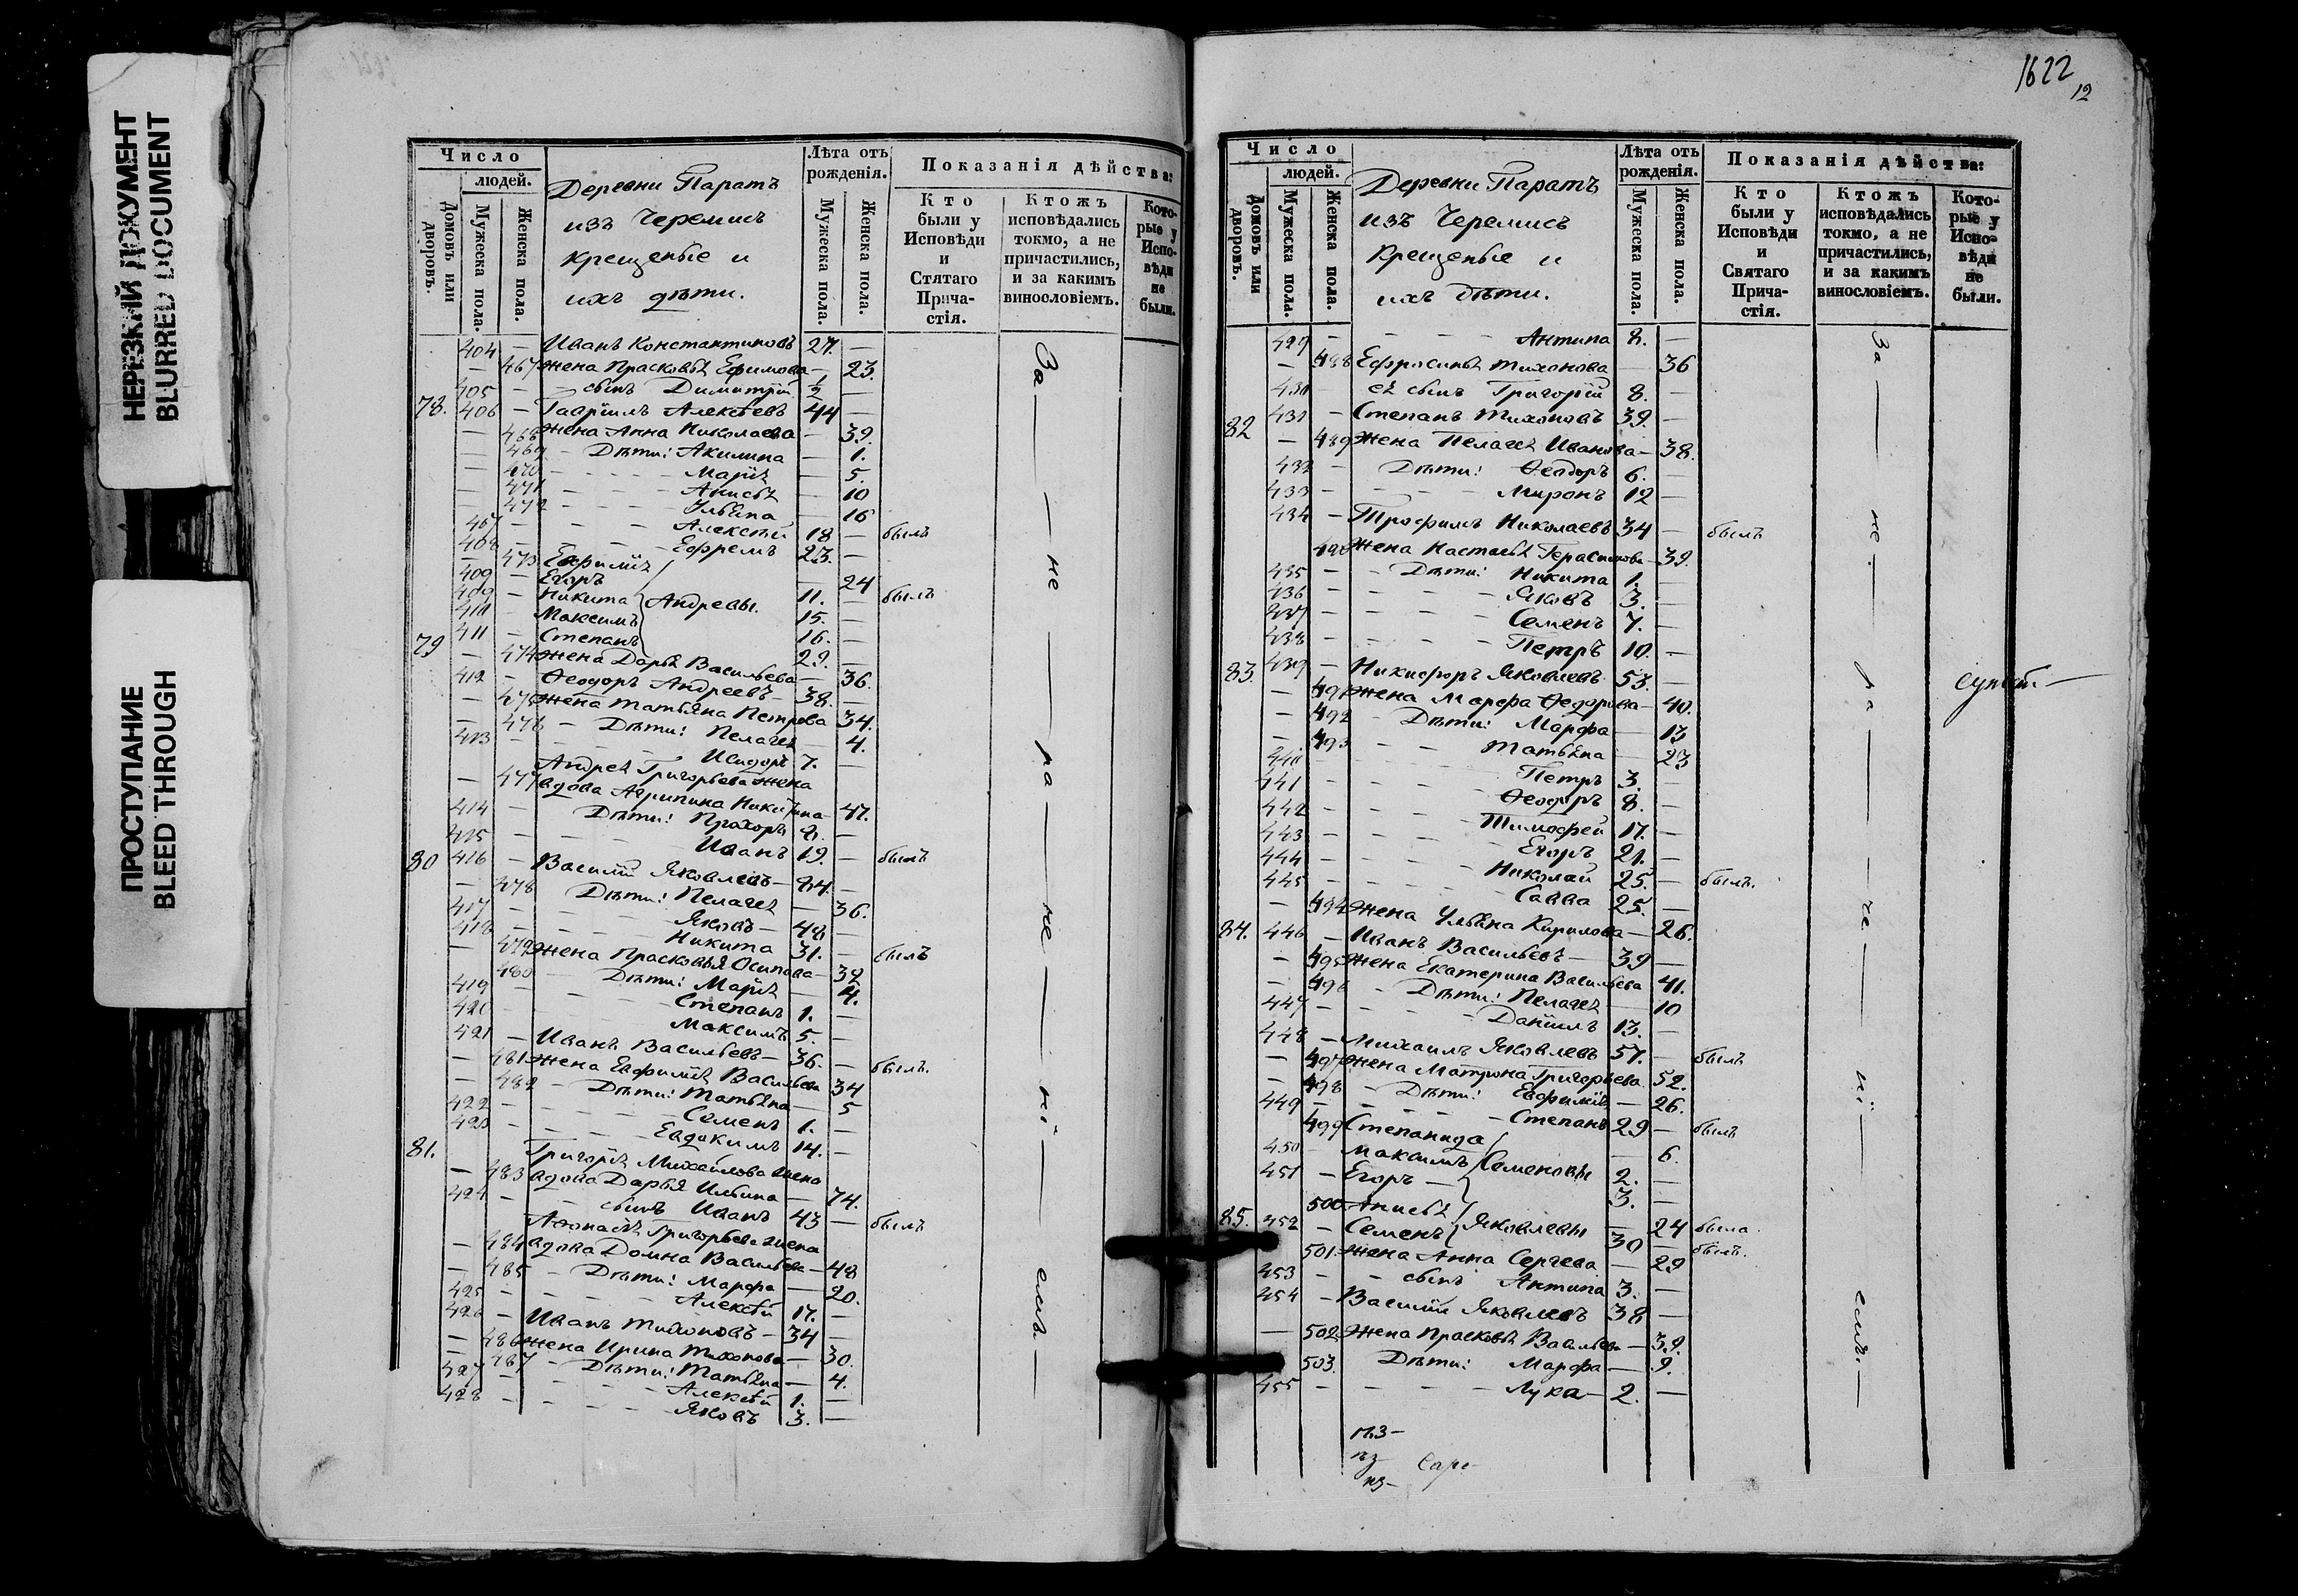 НЕРЕЗКИЙ ДОКУМЕНТ
BLURRED DOCUMENT
ПРОСТУПАНИЕ
BLEED THROUGH
Число
людей.
Домовъ или дворовъ.
Мужеска пола.
Женска пола.
Деревни Паратъ
изъ Черемисъ
крещеные и
ихъ дѣти.
Лѣта отъ рожденія.
Мужеска пола.
Женска пола.
Показанія дѣйства:
Кто были у Исповѣди и Стятаго Прича-стія.
Ктожъ исповѣдались токмо, а не причастились, и за какимъ винословіемъ.
Кото-рые у Испо-вѣди не были.
404 — Иванъ Константиновъ 27. —
— 467 жена Прасковья Ефимова — 23.
405 — — сынъ Димитрій 1/2 —
78. 406 — Гавріилъ Алексѣевъ 44 —
— 468 жена Анна Николаева — 39.
— 469 — Дѣти: Акилина — 1.
— 470 — — — Марія — 5.
— 471 — — — Анисья — 10
— 472 — — — Ульяна — 16
407 — — — Алексѣй 18 — былъ
408 — — — Ефремъ 23.
— 473 Евфимія
409 — Егоръ 24
409 — Никита Андреевы. 11. — былъ
410 — Максимъ 15. —
411 — Степанъ 16. —
79 — 474 жена Дарья Васильева 29. —
412 — Ѳеодоръ Андреевъ — 36.
— 475 жена Татьяна Петрова 38. —
— 476 — Дѣти: Пелагея 34.
413 — — — Исидоръ 7. 4.
Андрея Григорьева жена
— 477 вдова Агрипина Никитина — 47.
414 — Дѣти: Прохоръ —
415 — — — Иванъ 19. — былъ
80 416 — Василій Яковлевъ —
— 478 Дѣти: Пелагея — 36.
417 — — — Яковъ — 48 —
418 — — — Никита 31. — былъ
— 479 жена Прасковья Осипова — 32
— 480 — Дѣти: Марія — 4.
419 — — — Степанъ 1. —
420 — — — Максимъ 5. —
421 — Иванъ Васильевъ — 36. — былъ.
— 481 жена Евфимія Васильева 34
— 482 — Дѣти: Татьяна — 5
422 — — — Семенъ 1. —
423 — — — Евдокимъ 14. —
81. Григорія Михайлова жена
— 483 вдова Дарья Ильина — 74.
424 — — сынъ Иванъ 43 — былъ
Афонасія Григорьева жена
— 484 вдова Домна Васильева — 48
— 485 — Дѣти: Марфа — 20.
425 — — — Алексѣй 17. —
426 — Иванъ Тихоновъ — 34 —
— 486 жена Ирина Тихонова — 30.
— 487 — Дѣти: Татьяна — 4.
427 — — — Алексѣй 1. —
428 — — — Яковъ 3. —
За — не — ра — че — ні — емъ. —
1622
12
Число
людей.
Домовъ или дворовъ.
Мужеска пола.
Женска пола.
Деревни Паратъ
изъ Черемисъ
Крещеные и
ихъ дѣти.
Лѣта отъ рожденія.
Мужеска пола.
Женска пола.
Показанія дѣйства:
Кто были у Исповѣди и Святаго Прича-стія.
Ктожъ исповѣдались токмо, а не причастились, и за какимъ винословіемъ.
Кото-рые у Испо-вѣди не были.
429 — — — — Антипа 8. —
— 488 Ефросинья Тихонова — 36
430 ея сынъ Григорій 8. —
82 431 — Степанъ Тихоновъ 39. —
— 489 жена Пелагея Иванова — 38.
432 — Дѣти: Ѳеодоръ 6. —
433 — — — Миронъ 12 —
434 — Трофимъ Николаевъ 34 — былъ
490 жена Настасья Герасимова — 39.
435 — — Дѣти: Никита 1. —
436 — — — Яковъ 3. —
437 — — — Семенъ 7. —
438 — — — Петръ 10. —
83. 439 — Никифоръ Яковлевъ 53. —
— 491 жена Марфа Ѳедорова — 40.
— 492 — Дѣти: Марфа — 13
— 493 — — Татьяна — 23
440 — — — Петръ 3. —
441 — — — Ѳеодоръ 8. —
442 — — — Тимофей 17. —
443 — — — Егоръ 21. —
444 — — — Николай 25. — былъ.
445 — — — Савва 25. —
— 494 жена Ульяна Кирилова — 26.
84. 446 — Иванъ Васильевъ — 39 —
— 495 жена Екатерина Васильева 41.
— 496 — Дѣти: Пелагея — 10
447 — — — Даніилъ 13. —
448 — Михаилъ Яковлевъ 57. — былъ
— 497 жена Матрона Григорьева 52.
— 498 — Дѣти: Евфимія — 26.
449 — — — Степанъ 29 — былъ
499 Степанида — 6.
450 — Максимъ Семеновы 2. —
451 — Егоръ — 3. —
500 Анисья — 24 была.
85. 452 — Семенъ Яковлевы 30 — былъ.
501. жена Анна Сергеева — 29
453 — — сынъ Антипа 3. —
454 — Василій Яковлевъ 38 —
— 502 жена Прасковья Васильева — 39.
503. Дѣти: Марфа — 9.
455 — — — Лука — 2. —
За — не — ра — че — ні — емъ. —